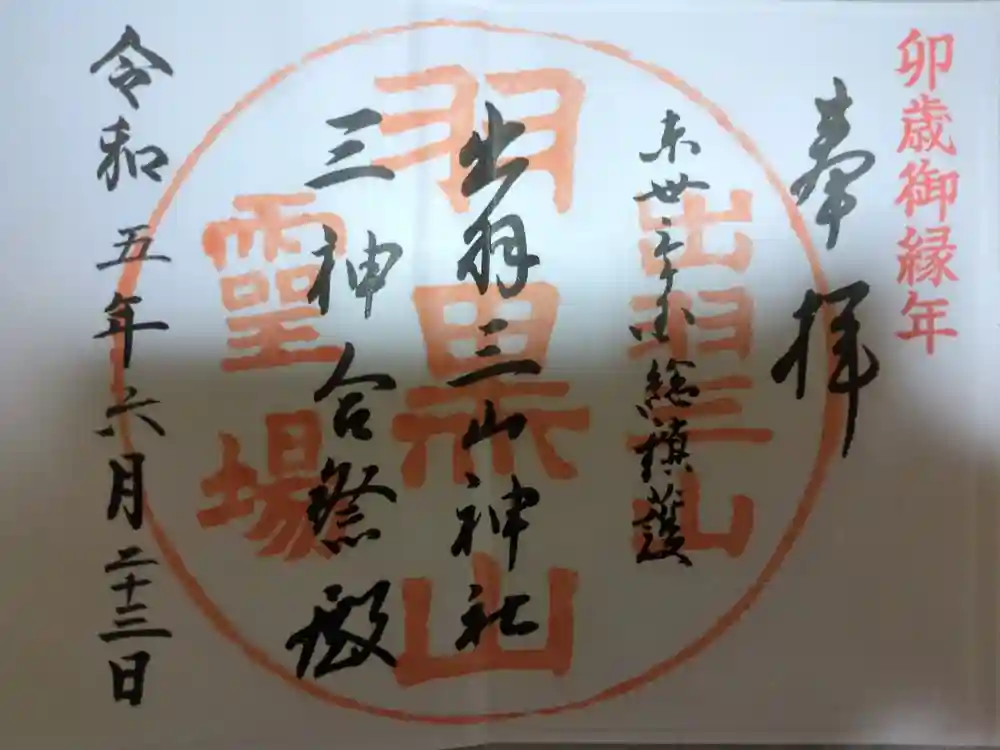 卯歳御縁年
奉拝
東卅三ヶ国総鎮護
出羽三山
出羽三山神社
羽黒山
三神合祭殿
霊場
令和五年六月二十三日